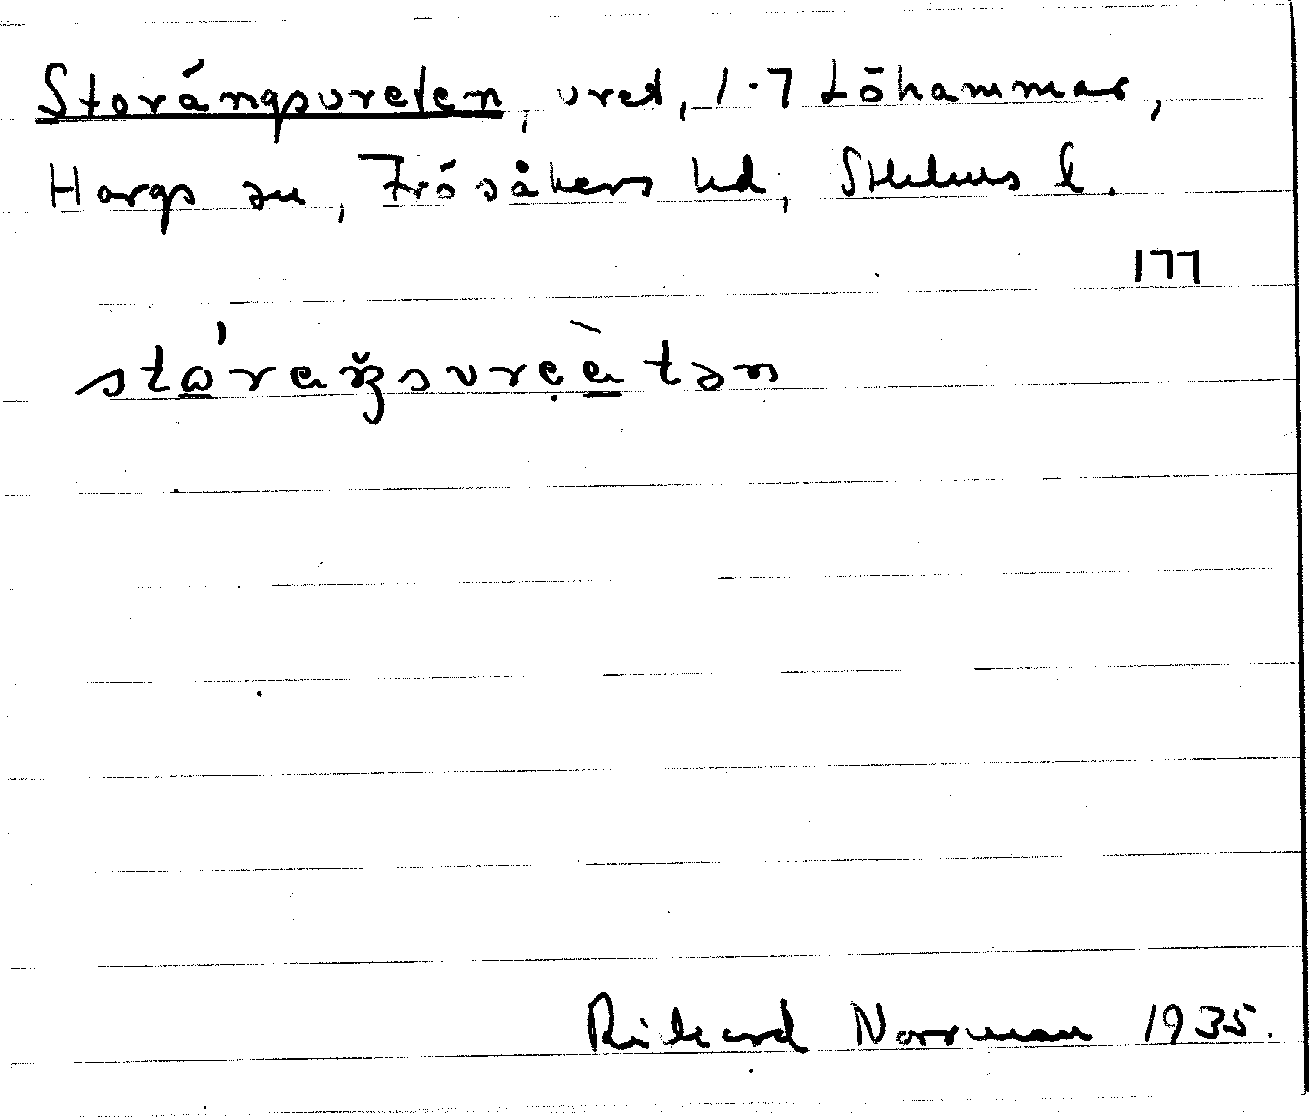 Storängsvreten, vret, 1·7 Löhammar,
Hargs sn, Frösåkers hd, Sthlms l.
177
Rickard Norrman 1935.